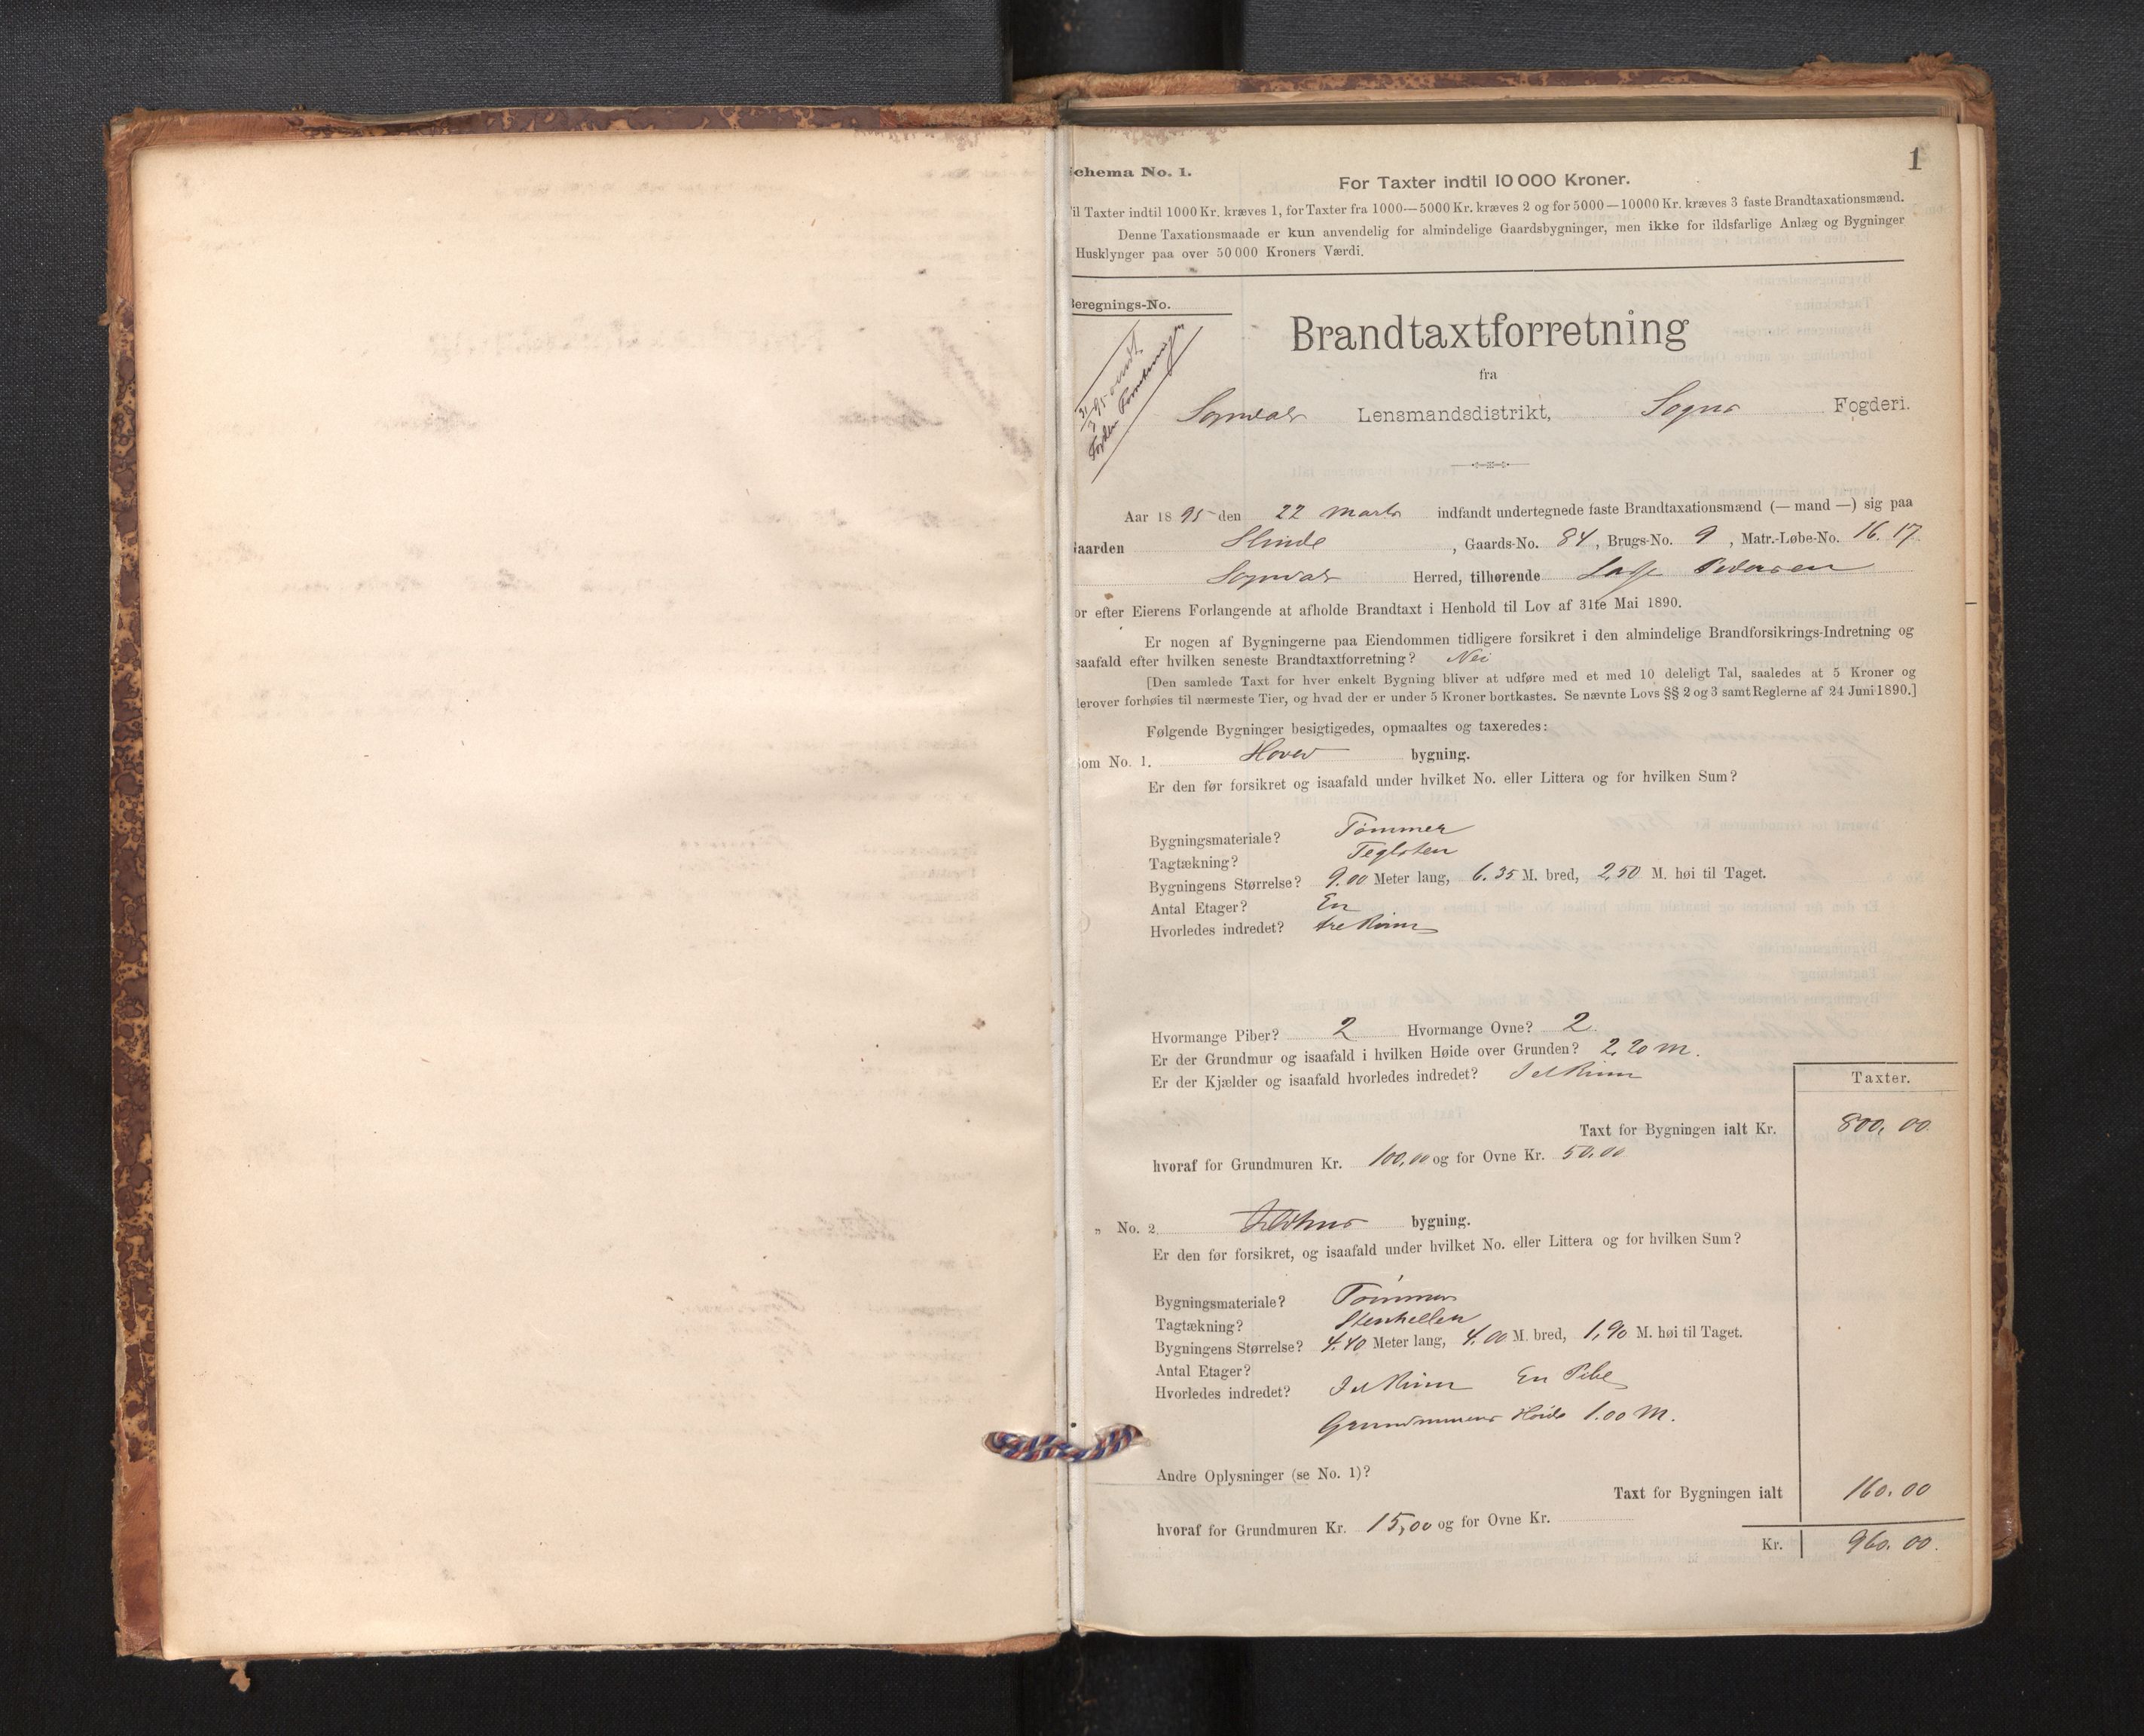 1
chema No. 1.
For Taxter indtil 10 000 Kroner.
il Taxter indtil 1000 Kr. kræves 1, for Taxter fra 1000—5000 Kr. kræves 2 og for 5000—10000 Kr. kræves 3 faste Brandtaxationsmænd.
Denne Taxationsmaade er kun anvendelig for almindelige Gaardsbygninger, men ikke for ildsfarlige Anlæg og Bygninger
Husklynger paa over 50 000 Kroners Værdi.
Beregnings-No.
Brandtaxtforretning
fra
Sogndals Lensmandsdistrikt, Sogns Fogderi.
Aar 1895 den 22 Marts indfandt undertegnede faste Brandtaxationsmænd (— mand —) sig paa
Gaarden Slinde, Gaards-No. 84, Brugs-No. 9, Matr.-Løbe-No. 16. 17
Sogndals Herred, tilhørende Lasse Pedersen
or efter Eierens Forlangende at afholde Brandtaxt i Henhold til Lov af 31te Mai 1890.
Er nogen af Bygningerne paa Eiendommen tidligere forsikret i den almindelige Brandforsikrings-Indretning og
saafald efter hvilken seneste Brandtaxtforretning? Nei
[Den samlede Taxt for hver enkelt Bygning bliver at udføre med et med 10 deleligt Tal, saaledes at 5 Kroner og
derover forhøies til nærmeste Tier, og hvad der er under 5 Kroner bortkastes. Se nævnte Lovs §§ 2 og 3 samt Reglerne af 24 Juni 1890.]
Følgende Bygninger besigtigedes, opmaaltes og taxeredes:
Som No. 1. Hoved bygning.
Er den før forsikret og isaafald under hvilket No. eller Littera og for hvilken Sum?
Bygningsmateriale? Tømmer
Tagtækning? Teglsten
Bygningens Størrelse? 9.00 Meter lang, 6.35 M. bred, 2,50 M. høi til Taget.
Antal Etager? En
Hvorledes indredet? tre Rum
Hvormange Piber? 2 Hvormange Ovne? 2
Er der Grundmur og isaafald i hvilken Høide over Grunden? 2,20 M.
Er der Kjælder og isaafald hvorledes indredet? I et Rum
Taxter.
Taxt for Bygningen ialt Kr. 800,00
hvoraf for Grundmuren Kr. 100,00 og for Ovne Kr. 50,00
„ No. 2. Ildhus bygning.
Er den før forsikret, og isaafald under hvilket No. eller Littera og for hvilken Sum?
Bygningsmateriale? Tømmer
Tagtækning? Stenheller
Bygningens Størrelse? 4.40 Meter lang, 4.00 M. bred, 1,90 M. høi til Taget.
Antal Etager?
Hvorledes indredet? I et Rum En Pibe
Grundmurens Høide 1.00 M.
Andre Oplysninger (se No. 1)?
Taxt for Bygningen ialt 160.00
hvoraf for Grundmuren Kr. 15,00 og for Ovne Kr.
Kr. 960.00